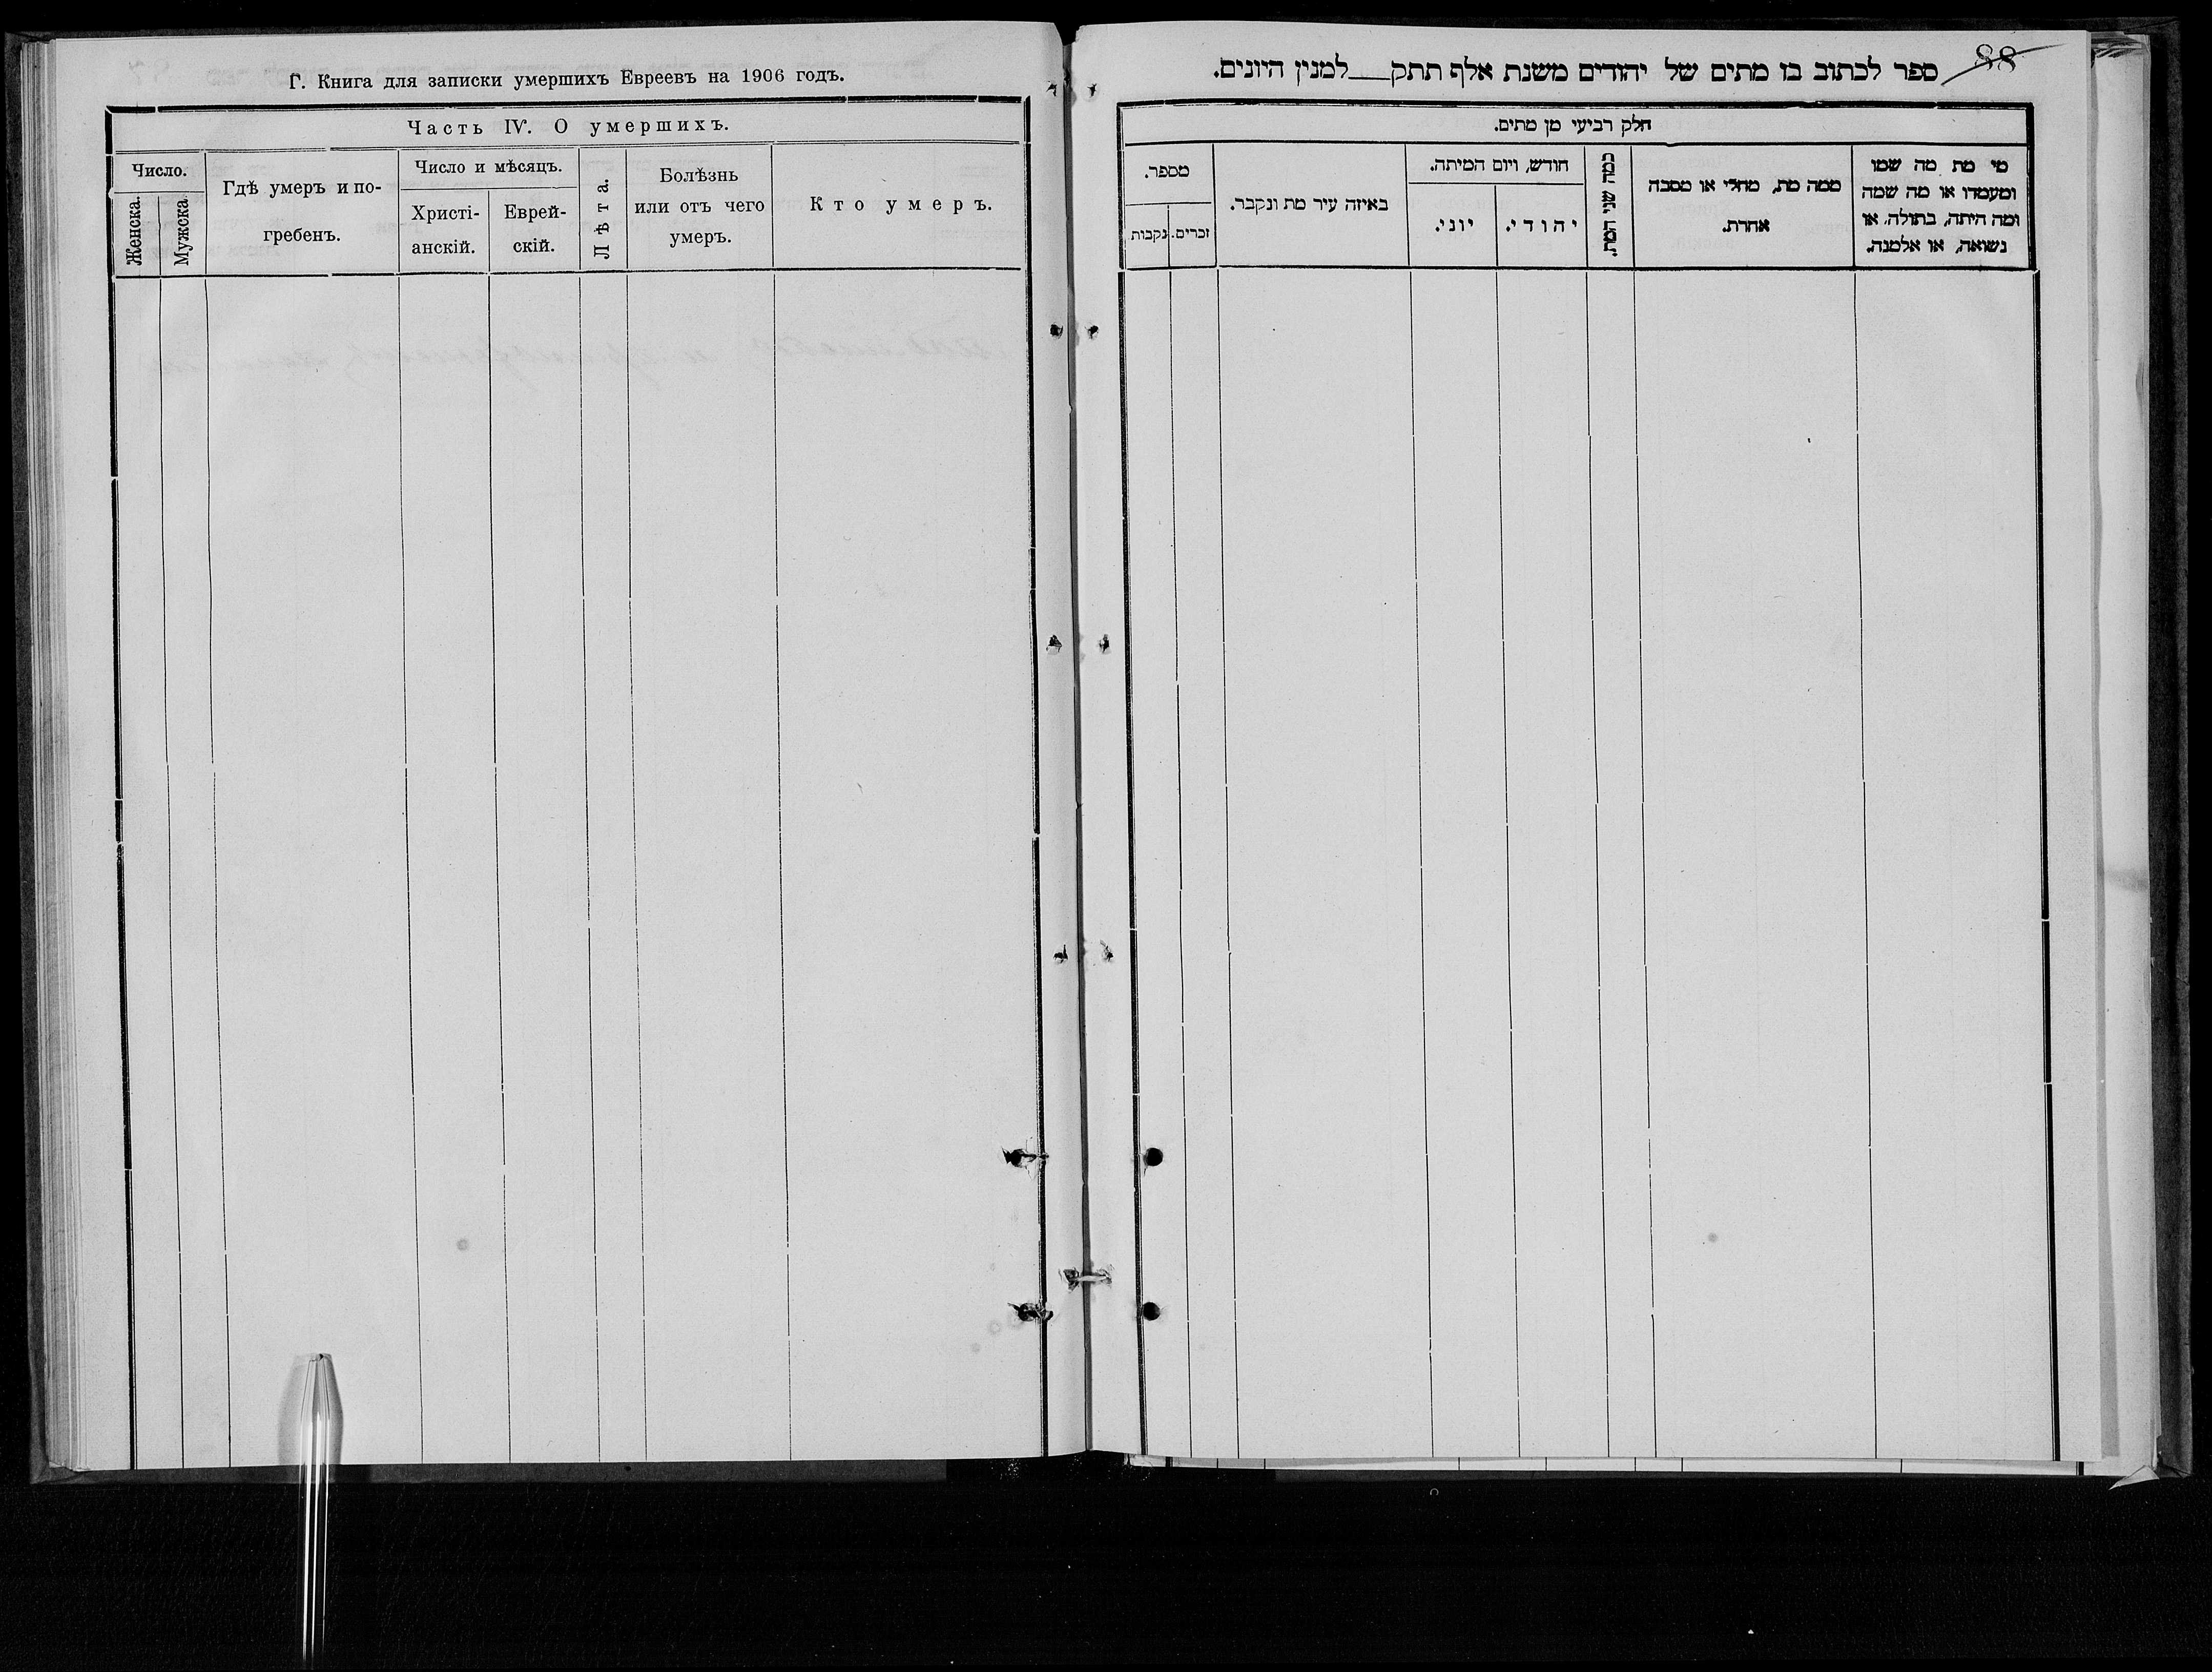 Г. Книга для записки умершихъ Евреевъ на 1906 годъ.
Часть IV. О умершихъ.
Число.
Женска.
Мужска.
Гдѣ умеръ и по-
гребенъ.
Число и мѣсяцъ.
Христі-
анскій.
Еврей-
скій.
Лѣта.
Болѣзнь
или отъ чего
умеръ.
Кто умеръ.
88
ספר לכתוב בו מתים של יהודים משנת אלף תתק___למנין היונים.
חלק רביעי מן מתים.
מי מת מה שמו
ומעמדו או מה שמה
ומה היתה, בתולה, או
נשואה, או אלמנה.
ממה מת, מחלי או מסבה
אחרת.
כמה שני המת.
חודש, ויום המיתה.
יהודי.
יוני.
באיזה עיר מת ונקבר.
מספר.
זכרים.
נקבות